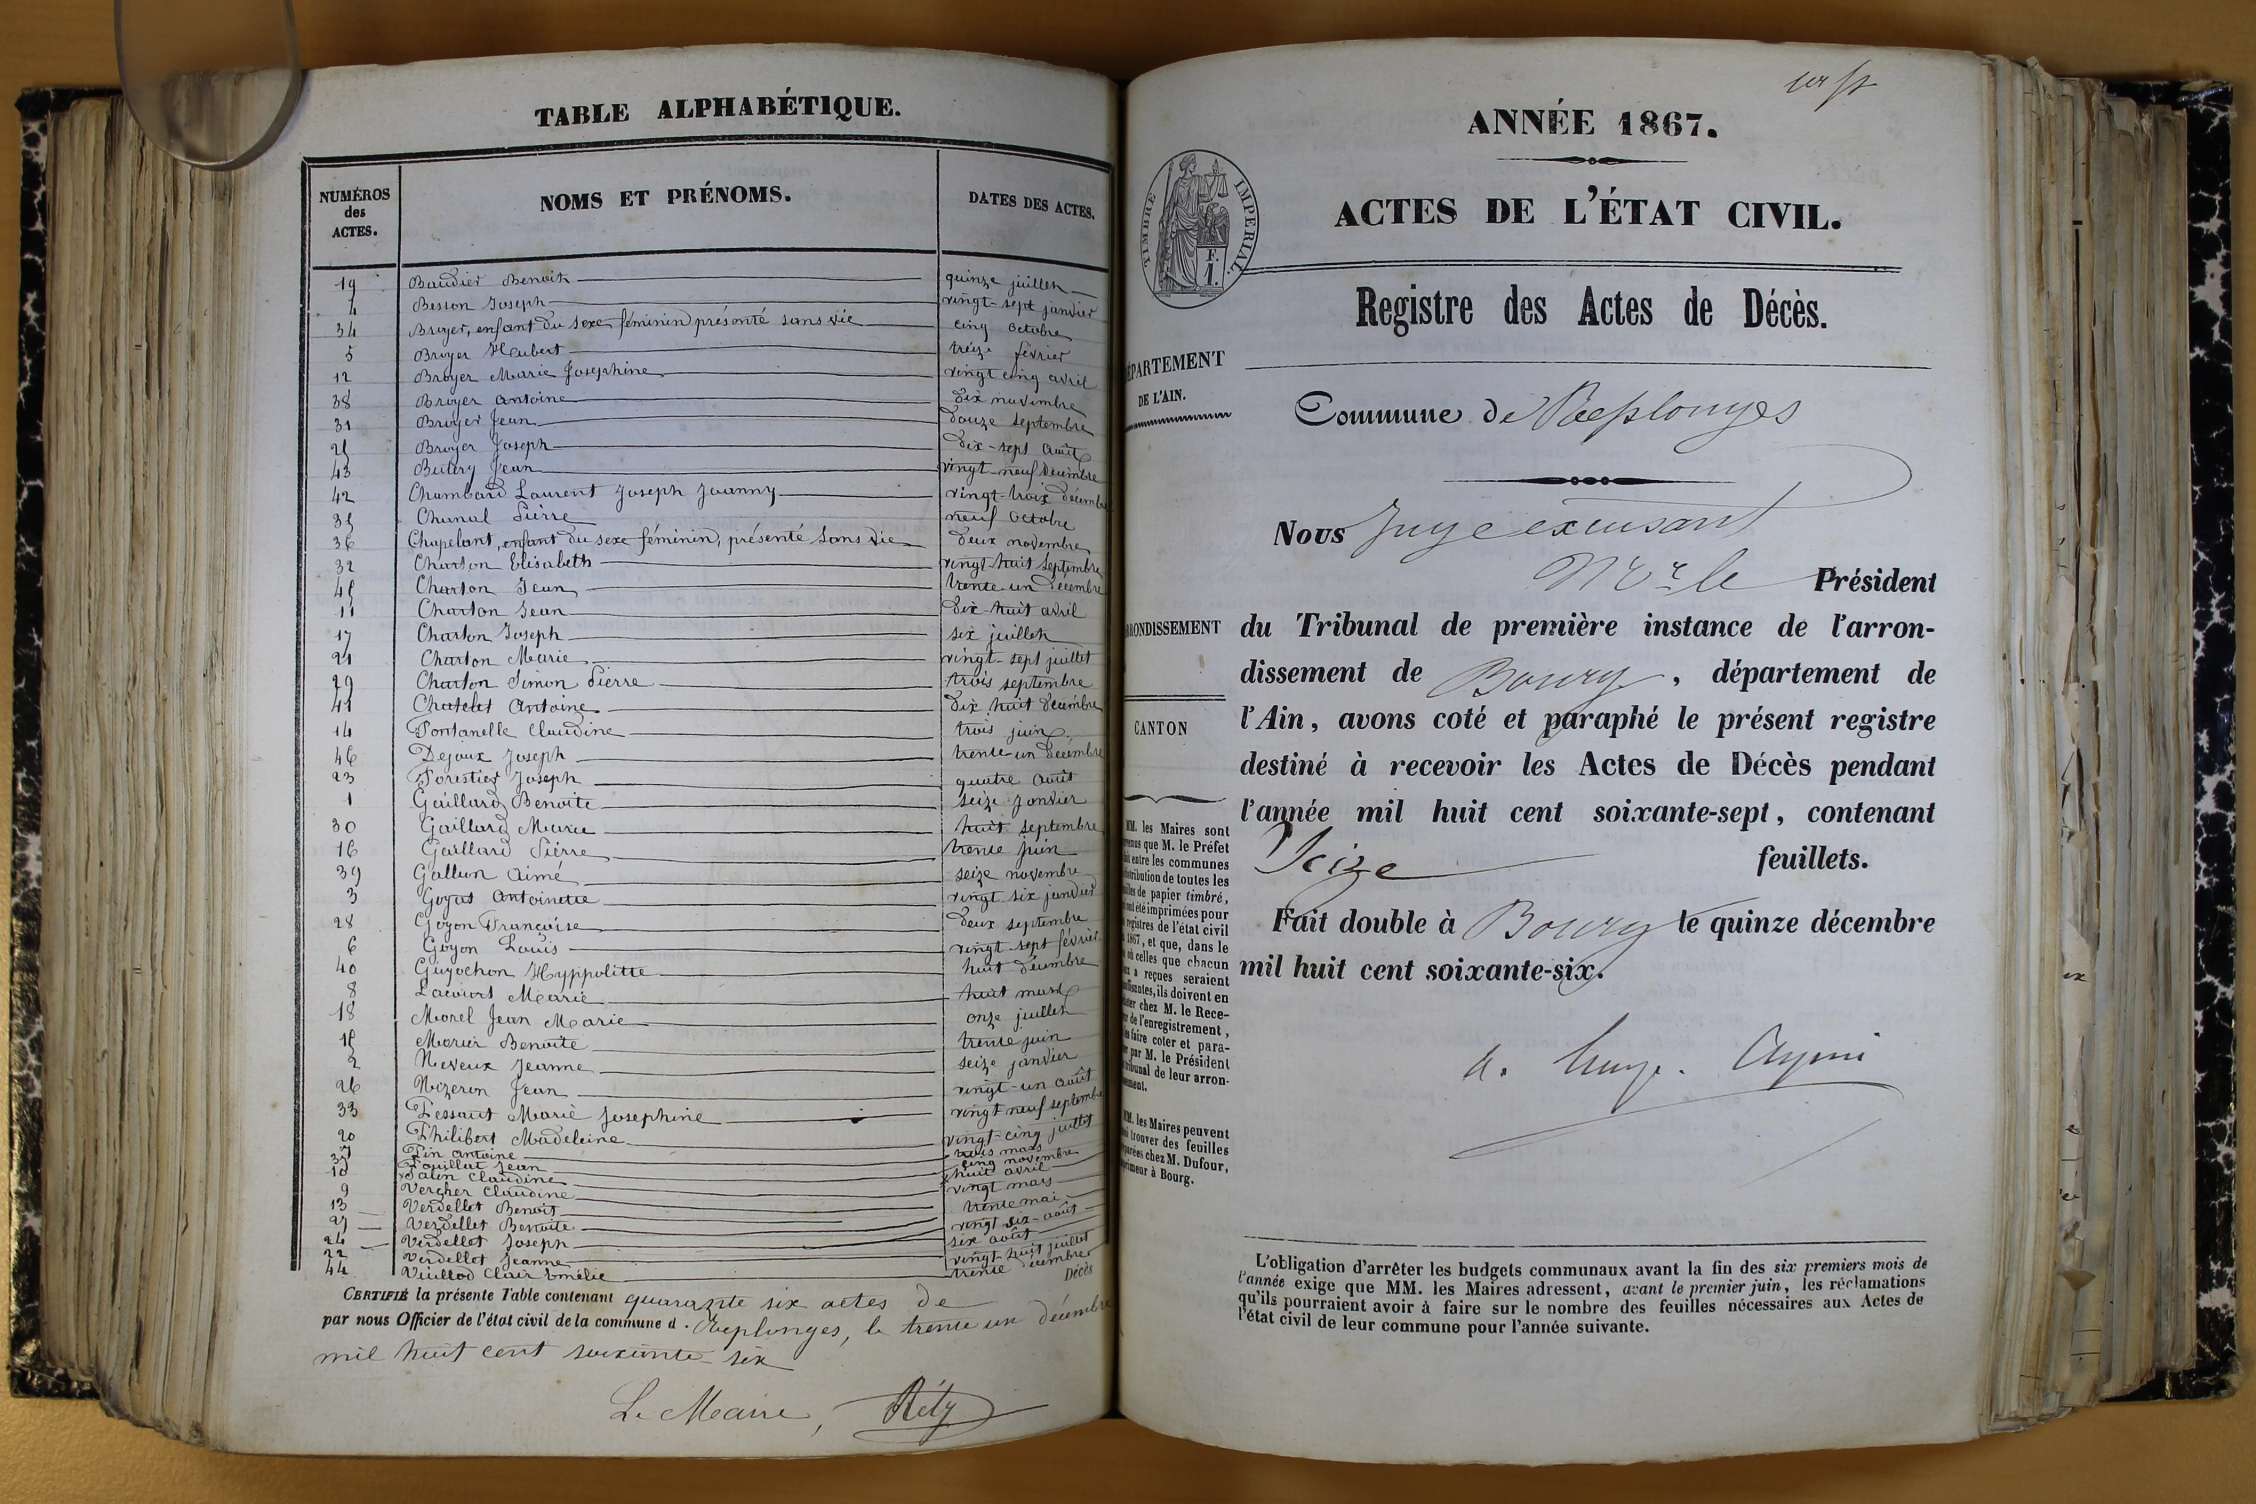 TABLE ALPHABÉTIQUE.
NUMÉROS des ACTES.
NOMS ET PRÉNOMS.
DATES DES ACTES.
19 Baudier Benoit quinze juillet
4 Besson Joseph vingt-sept janvier
34 Broyer, enfant du sexe féminin présenté sans vie cinq octobre
5 Broyer Hubert treize février
12 Broyer Marie Josephine vingt cinq avril
38 Broyer Antoine dix novembre
31 Broyer Jean douze septembre
25 Broyer Joseph dix-sept août
43 Buiry Jean vingt-neuf décembre
42 Chambard Laurent Joseph Joanny vingt-trois décembre
35 Chanal Pierre neuf octobre
36 Chapelant, enfant du sexe féminin, présenté sans vie deux novembre
32 Charton Elisabeth vingt-huit septembre
45 Charton Jean trente-un décembre
11 Charton Jean dix-huit avril
17 Charton Joseph six juillet
21 Charton Marie vingt-sept juillet
29 Charton Simon Pierre trois septembre
41 Chatelet Antoine dix huit décembre
14 Fontanelle Claudine trois juin
46 Dejoux Joseph trente-un décembre
23 Forestier Joseph quatre août
1 Gaillard Benoite seize janvier
30 Gaillard Marie huit septembre
16 Gaillard Pierre trente juin
39 Gallun Aimé seize novembre
3 Goyat Antoinette vingt six janvier
28 Goyon Françoise deux septembre
6 Goyon Louis vingt-sept février
40 Guyochon Hyppolitte huit décembre
8 Lacourt Marie huit mars
18 Morel Jean Marie onze juillet
15 Morier Benoite trente juin
2 Neveux Jeanne seize janvier
26 Nizeron Jean vingt-un août
33 Pessaut Marie Josephine vingt neuf septembre
20 Philibert Madeleine vingt-cinq juillet
7 Pin Antoine trois mars
37 Pouillat Jean cinq novembre
10 Patin Claudine huit avril
9 Vercher Claudine vingt mars
13 Verdellet Benoit trente mai
27 Verdellet Benoite vingt six août
24 Verdellet Joseph six août
22 Verdellet Jeanne vingt huit juillet
44 Vuillod Clair Emélie trente décembre
Décès
CERTIFIÉ la présente Table contenant quarante six actes de
par nous Officier de l'état civil de la commune d. Replonges, le trente un décembre
mil huit cent soixante-six
Le Maire, Réty
ANNÉE 1867.
ACTES DE L'ÉTAT CIVIL.
TIMBRE IMPÉRIAL.
F.
1.
Registre des Actes de Décès.
DÉPARTEMENT
DE L'AIN.
Commune de Replonges
Nous Juge excusant
Mr le Président
ARRONDISSEMENT
du Tribunal de première instance de l'arron-
dissement de Bourg, département de
CANTON
l'Ain, avons coté et paraphé le présent registre
destiné à recevoir les Actes de Décès pendant
l'année mil huit cent soixante-sept, contenant
Seize feuillets.
Fait double à Bourg le quinze décembre
mil huit cent soixante-six.
MM. les Maires sont
que M. le Préfet
entre les communes
distribution de toutes les
de papier timbré,
été imprimées pour
registres de l'état civil
1867, et que, dans le
où celles que chacun
a reçues seraient
ils doivent en
chez M. le Rece-
de l'enregistrement,
faire coter et para-
par M. le Président
tribunal de leur arron-
MM. les Maires peuvent
trouver des feuilles
chez M. Dufour,
imprimeur à Bourg.
L'obligation d'arrêter les budgets communaux avant la fin des six premiers mois de
l'année exige que MM. les Maires adressent, avant le premier juin, les réclamations
qu'ils pourraient avoir à faire sur le nombre des feuilles nécessaires aux Actes de
l'état civil de leur commune pour l'année suivante.